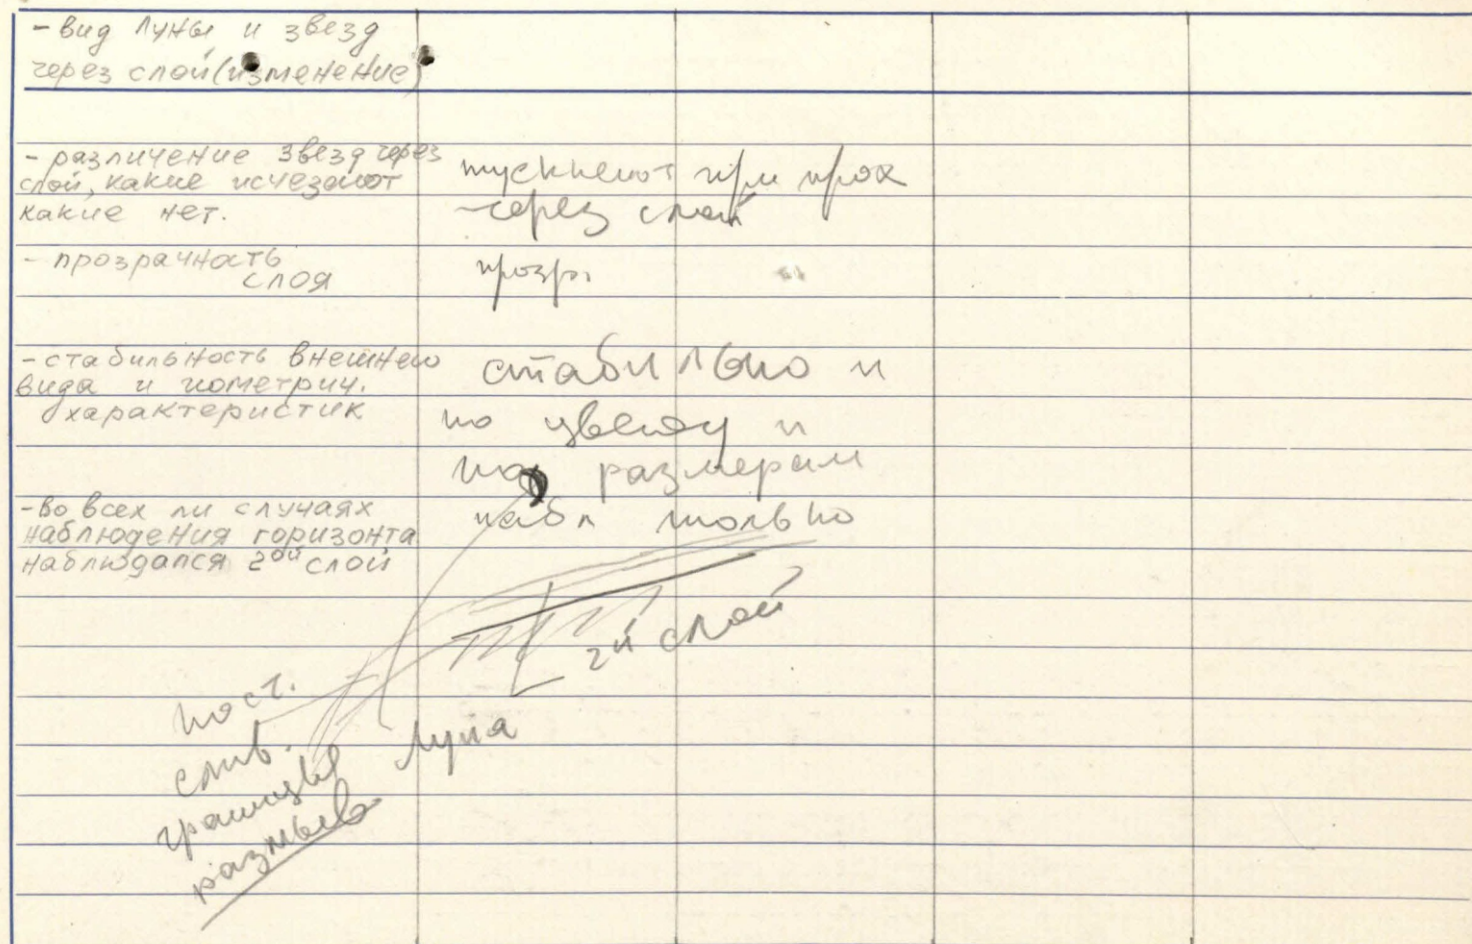 - вид Луны и звезд
через слой (изменение)
- различение звезд через
слой, какие исчезают
какие нет.
тускнеют при прох
через слой
- прозрачность
слоя
прозр.
- стабильность внешнего
вида и геометрич.
характеристик
стабильно и
по цвету и
по размерам
- во всех ли случаях
наблюдения горизонта
наблюдался 2ой слой
набл только
2й слой
пост.
слив.
границы
размыв
Луна